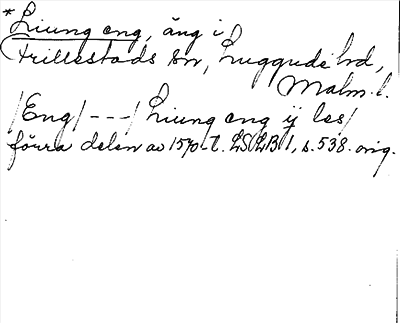 * Liung eng, äng i
Frillestads sn, Luggude hd,
Malm. l.
/Eng/ --- / Liung eng ij les/
förra delen av 1570-t. LSLB 1, s. 538. orig.